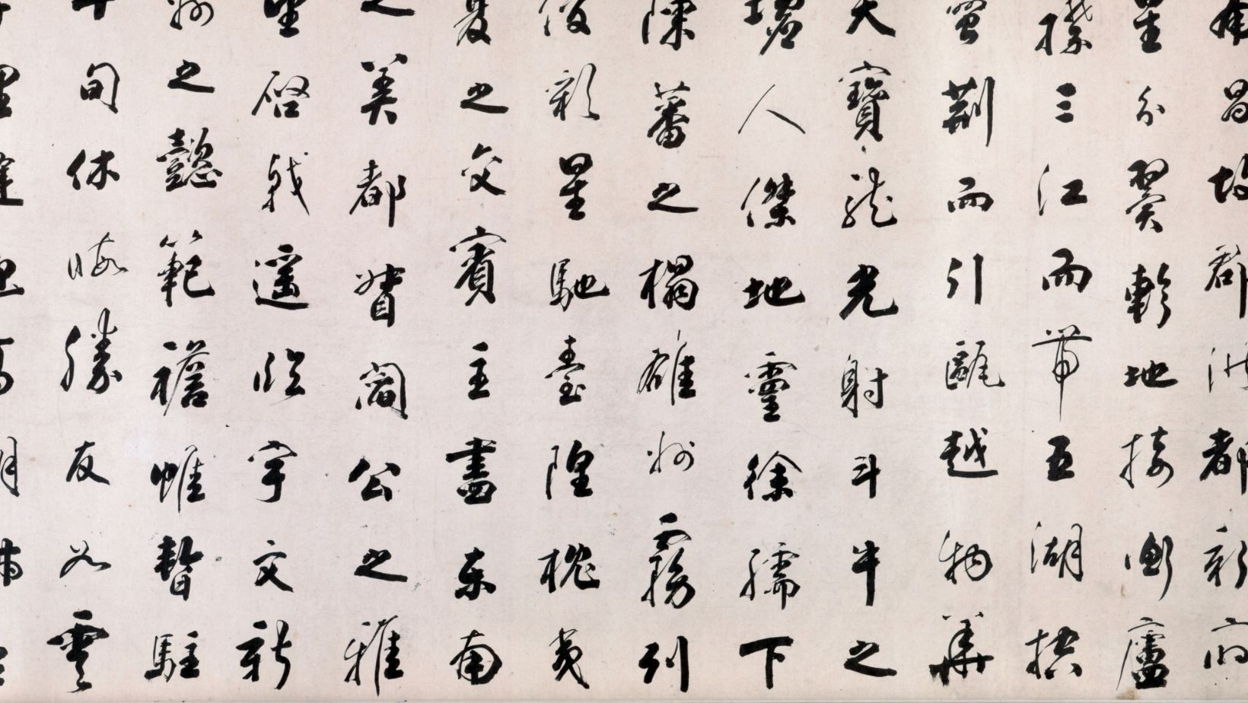 南昌故郡洪都新府
星分翼軫地接衡廬
襟三江而帶五湖控
蠻荊而引甌越物華
天寶龍光射斗牛之
墟人傑地靈徐孺下
陳蕃之榻雄州霧列
俊彩星馳臺隍枕夷
夏之交賓主盡東南
之美都督閻公之雅
望啓戟遙臨宇文新
州之懿範襜帷暫駐
十旬休暇勝友如雲